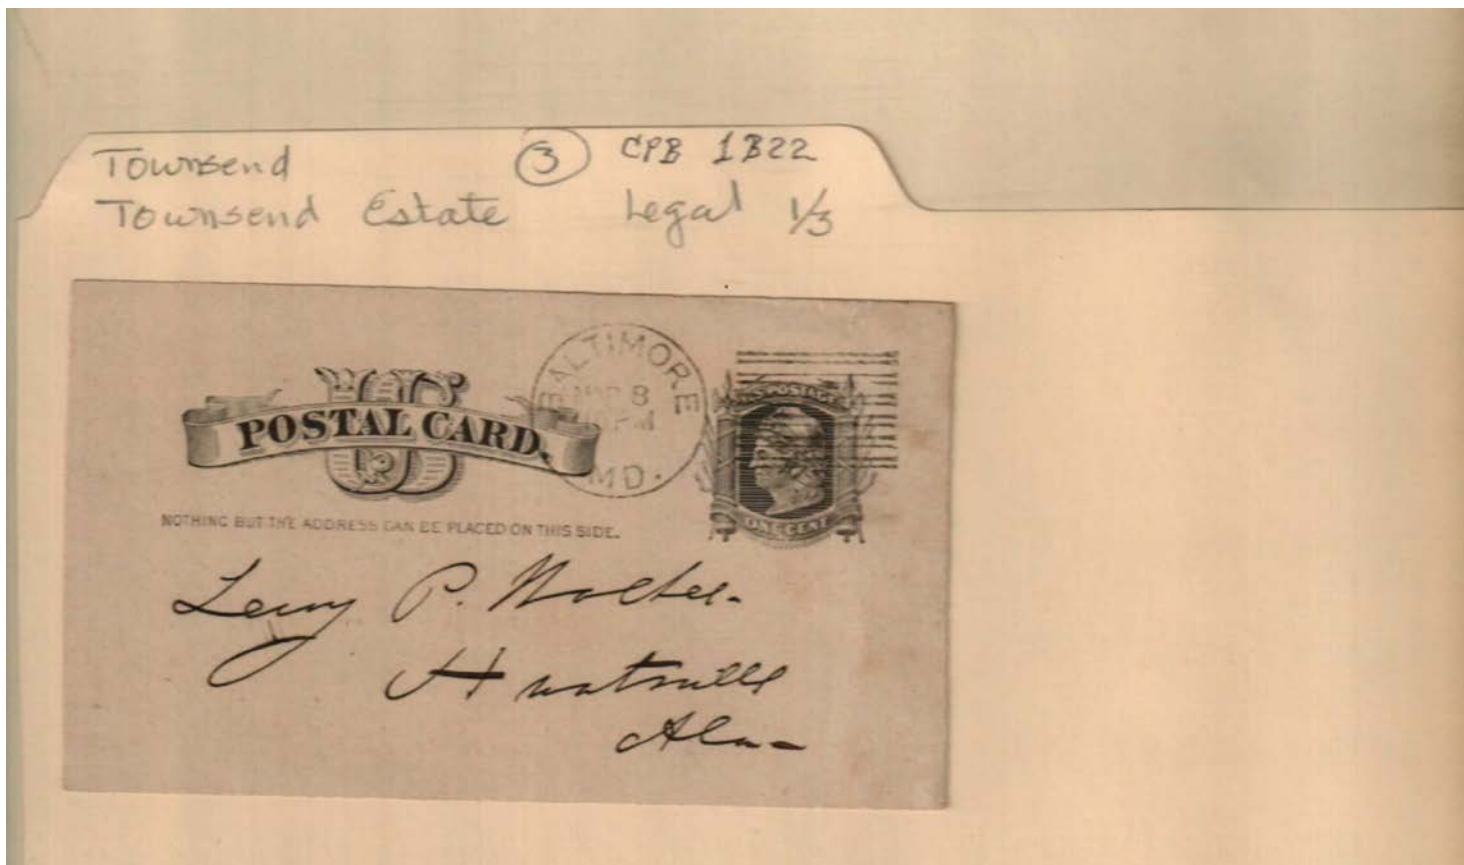 Townsend 3 CPB 1B22
Townsend Estate Legal 1/3
US
POSTAL CARD.
BALTIMORE
8
PM
MD.
U.S. POSTAGE
ONE CENT
NOTHING BUT THE ADDRESS CAN BE PLACED ON THIS SIDE.
Leroy P. Walker
Huntsville
Ala